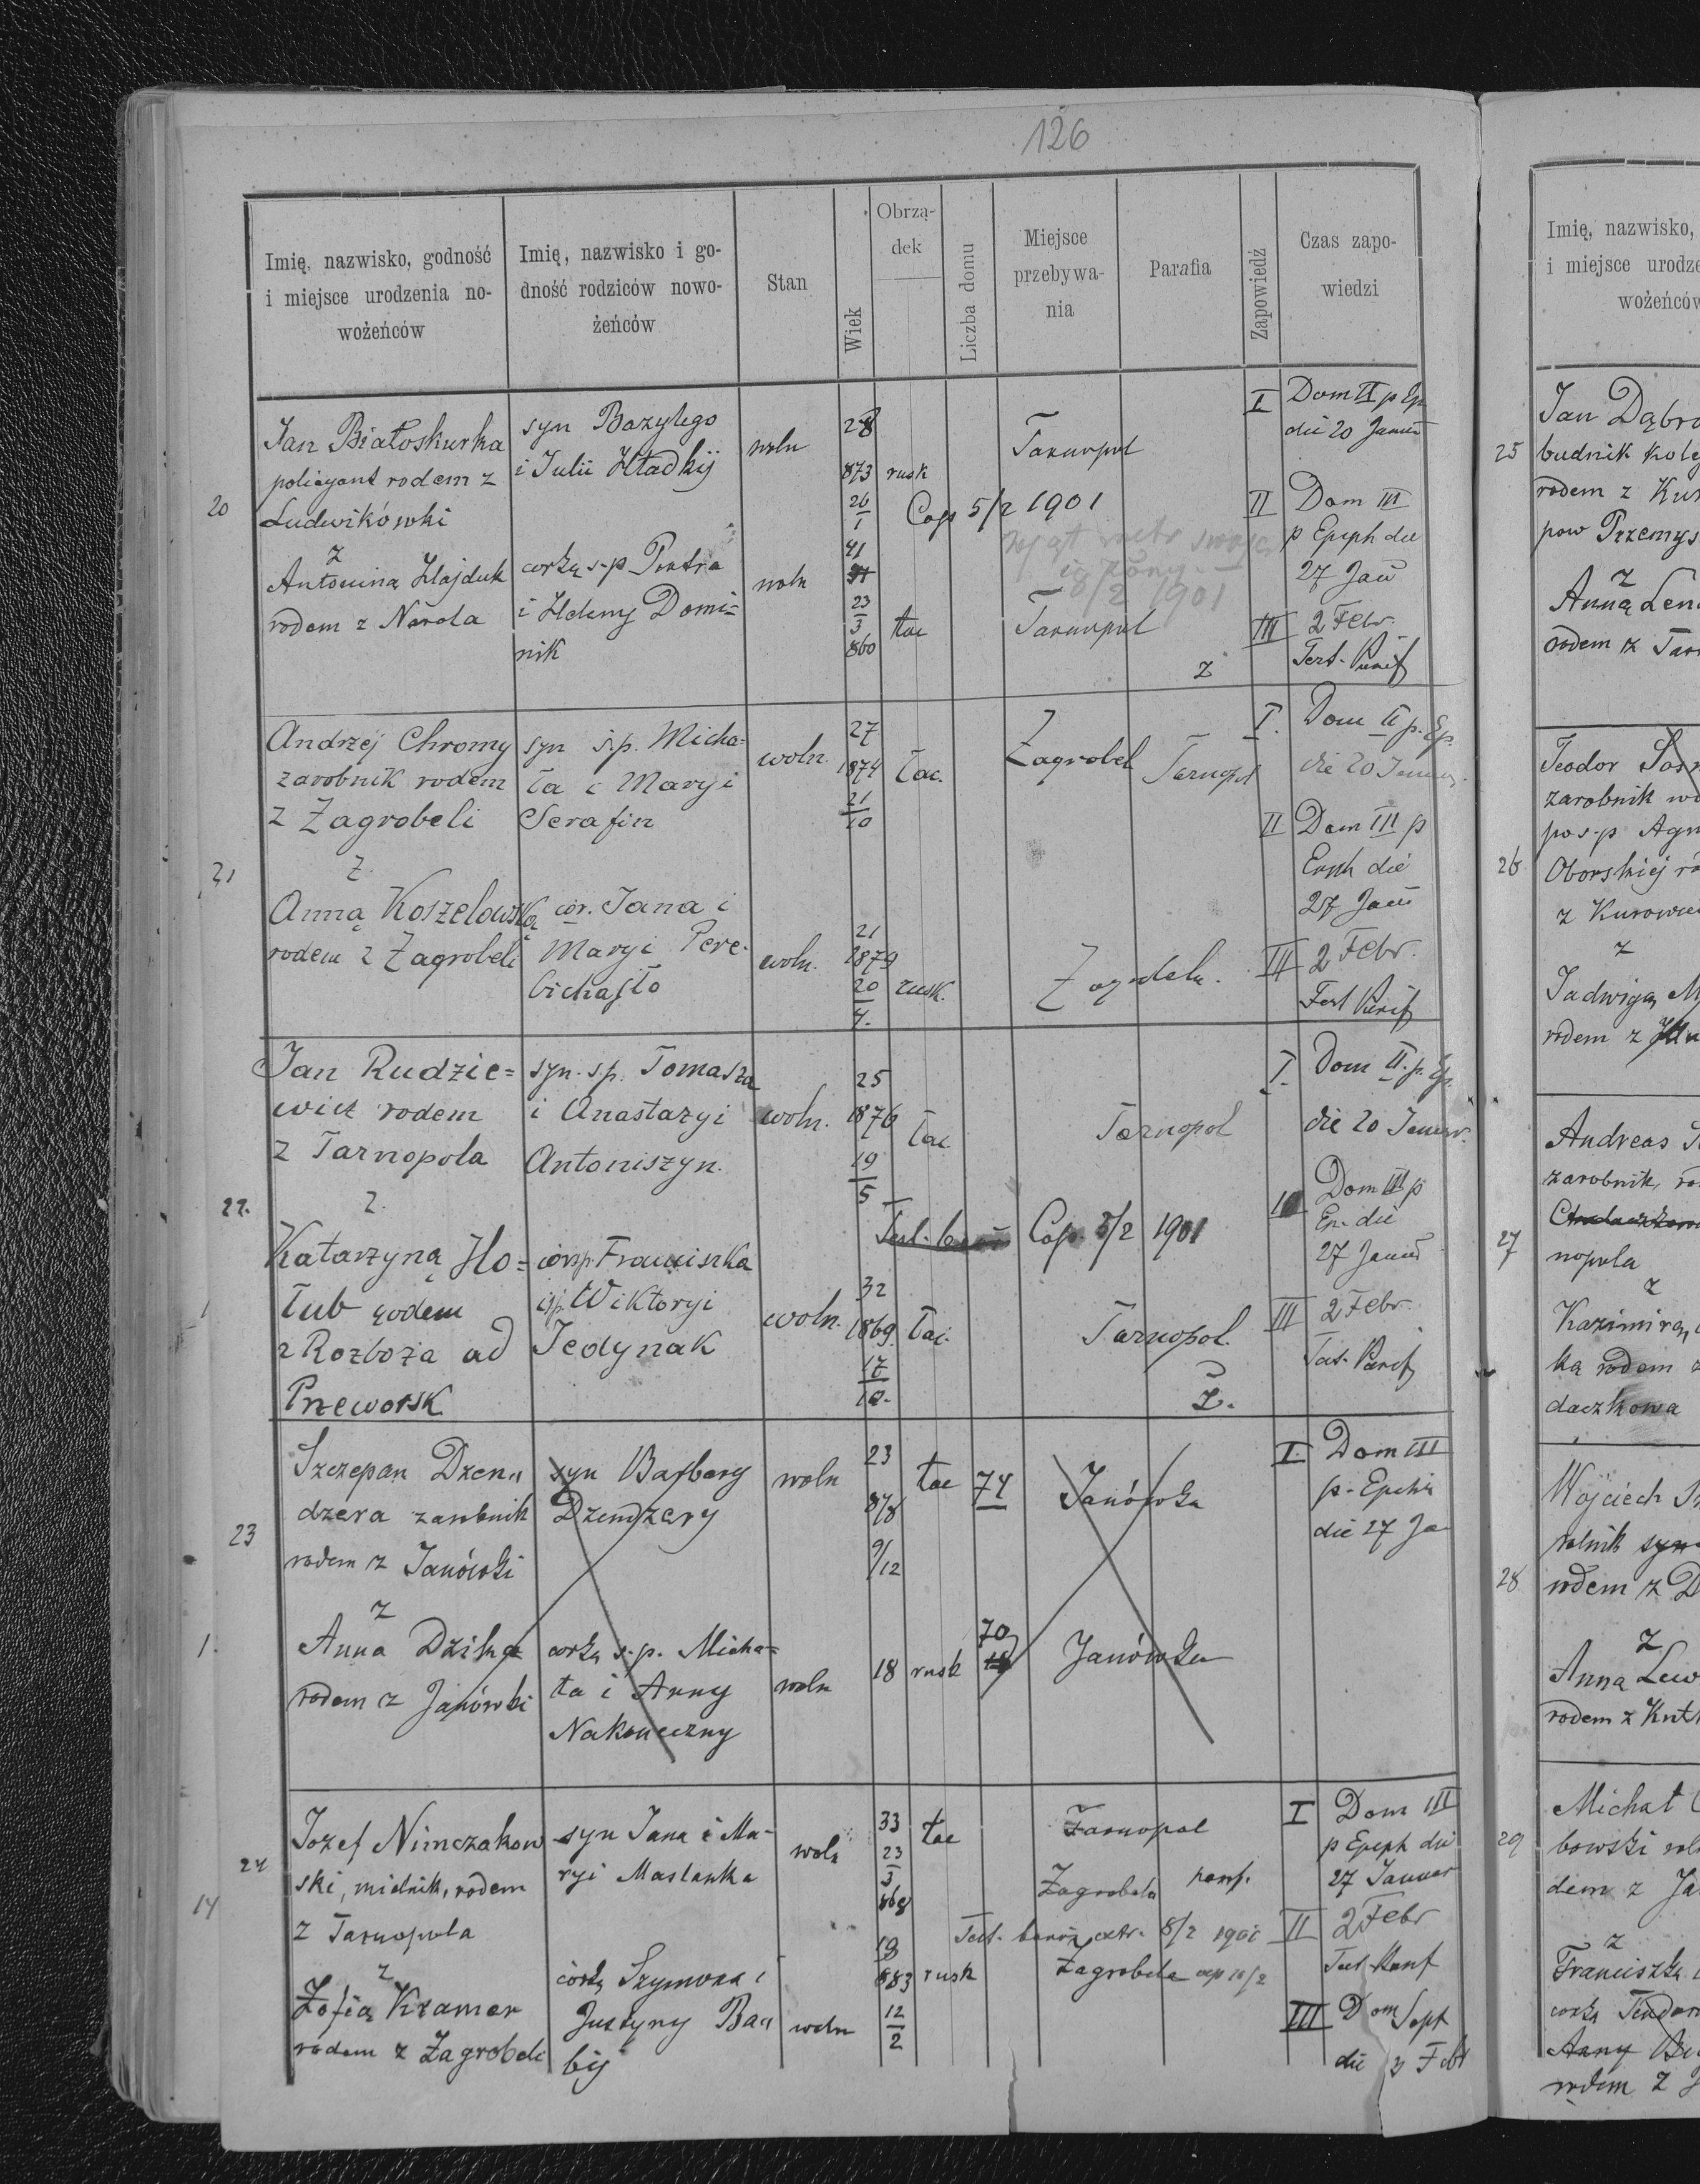 126
Imię, nazwisko, godność i miejsce urodzenia nowożeńców
Imię, nazwisko i godność rodziców nowożeńców
Stan
Wiek
Obrządek
Liczba domu
Miejsce przebywania
Parafia
Zapowiedź
Czas zapowiedzi
20
Jan Białoskurka
policyant rodem z
Ludwikówki
z
Antoniną Hajduk
rodem z Narola
syn Bazylego
i Julii Hładkij
corką s.p Piotra
i Heleny Domi=
nik
woln
woln
28
873
26/1
41
23/3
860
rusk
łac
Tarnopol
Cop 5/2 1901
8/2 1901
Tarnopol
z
I Dom II p Ep
die 20 Januar
II Dom III
p Epiph die
27 Jan
III 2 Febr.
Fest. Purif
21
Andrzej Chromy
zarobnik rodem
z Zagrobeli
z
Anną Koszelowską
rodem z Zagrobeli
syn s.p. Micha-
ła i Maryi
Serafin
cór. Jana i
Maryi Pere-
bichajło
woln.
woln.
27
1874
21/10
21
1879
20/4.
łac.
rusk.
Zagrobel
Tarnopol
I. Dom II p. Ep.
die 20 Januar.
II Dom III p
Epiph die
27 Jan
III 2 Febr.
Fest Purif
22.
Jan Rudzie=
wicz rodem
z Tarnopola
z.
Katarzyną Ho=
łub rodem
z Rozboża ad
Przeworsk
syn. sp. Tomasza
i Anastazyi
Antoniszyn.
cór sp. Franciszka
i sp. Wiktoryi
Jedynak
woln.
woln.
25
1876
19/5
32
1869.
17/10.
łac
łac.
Tarnopol
Cop. 5/2 1901
Tarnopol.
z.
I. Dom II. p. Ep.
die 20 Januar.
II Dom III p
Ep. die
27 Januar
III 2 Febr.
Fest. Purif
23
1.
Szczepan Dzen„
dzera zarobnik
rodem z Janówki
z
Anna
rodem z Janówki
syn Barbary
Dzendzery
corką s.p. Micha=
ła i Anny
Nakoneczny
woln
woln
23
878
9/12
18
łac
rusk
74
70
Janówka
Janówka
I. Dom III
p. Epiph
die 27 Ja
24
14
Jozef Nimczakow
ski, mielnik, rodem
z Tarnopola
z
Zofią Kramar
rodem z Zagrobeli
syn Jana i Ma-
ryi Maslanka
córką Szymona i
Justyny Ba„
bij
woln
woln
33
23/3
868
18
883
12/2
łac
rusk
Tarnopol
Zagrobela
Test. bann extr. 8/2 1901
Zagrobela cop 10/2
I Dom III
p Epiph die
27 Januar
II 2 Febr
Fest
III Dom Sept
die 3 Febr
Imię, nazwisko,
i miejsce
25
Jan
budnik
rodem z
pow Przemys
z
Anną
rodem z
26
Teodor
zarobnik
po s.p
Oborskiej
z
z
Jadwigą
rodem z
27
Andreas
zarobnik,
nopola
z
Kazimirą,
ka rodem
daczkowa
28
Wojciech
rolnik
rodem z
z
Anna
rodem z
29
Michał
bowski
dem z
z
Franciszką
corką
Anny
rodem z